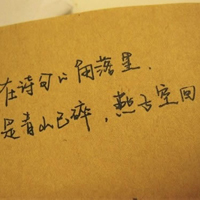 在诗句的角落里.
是青山已碎,燕子空回